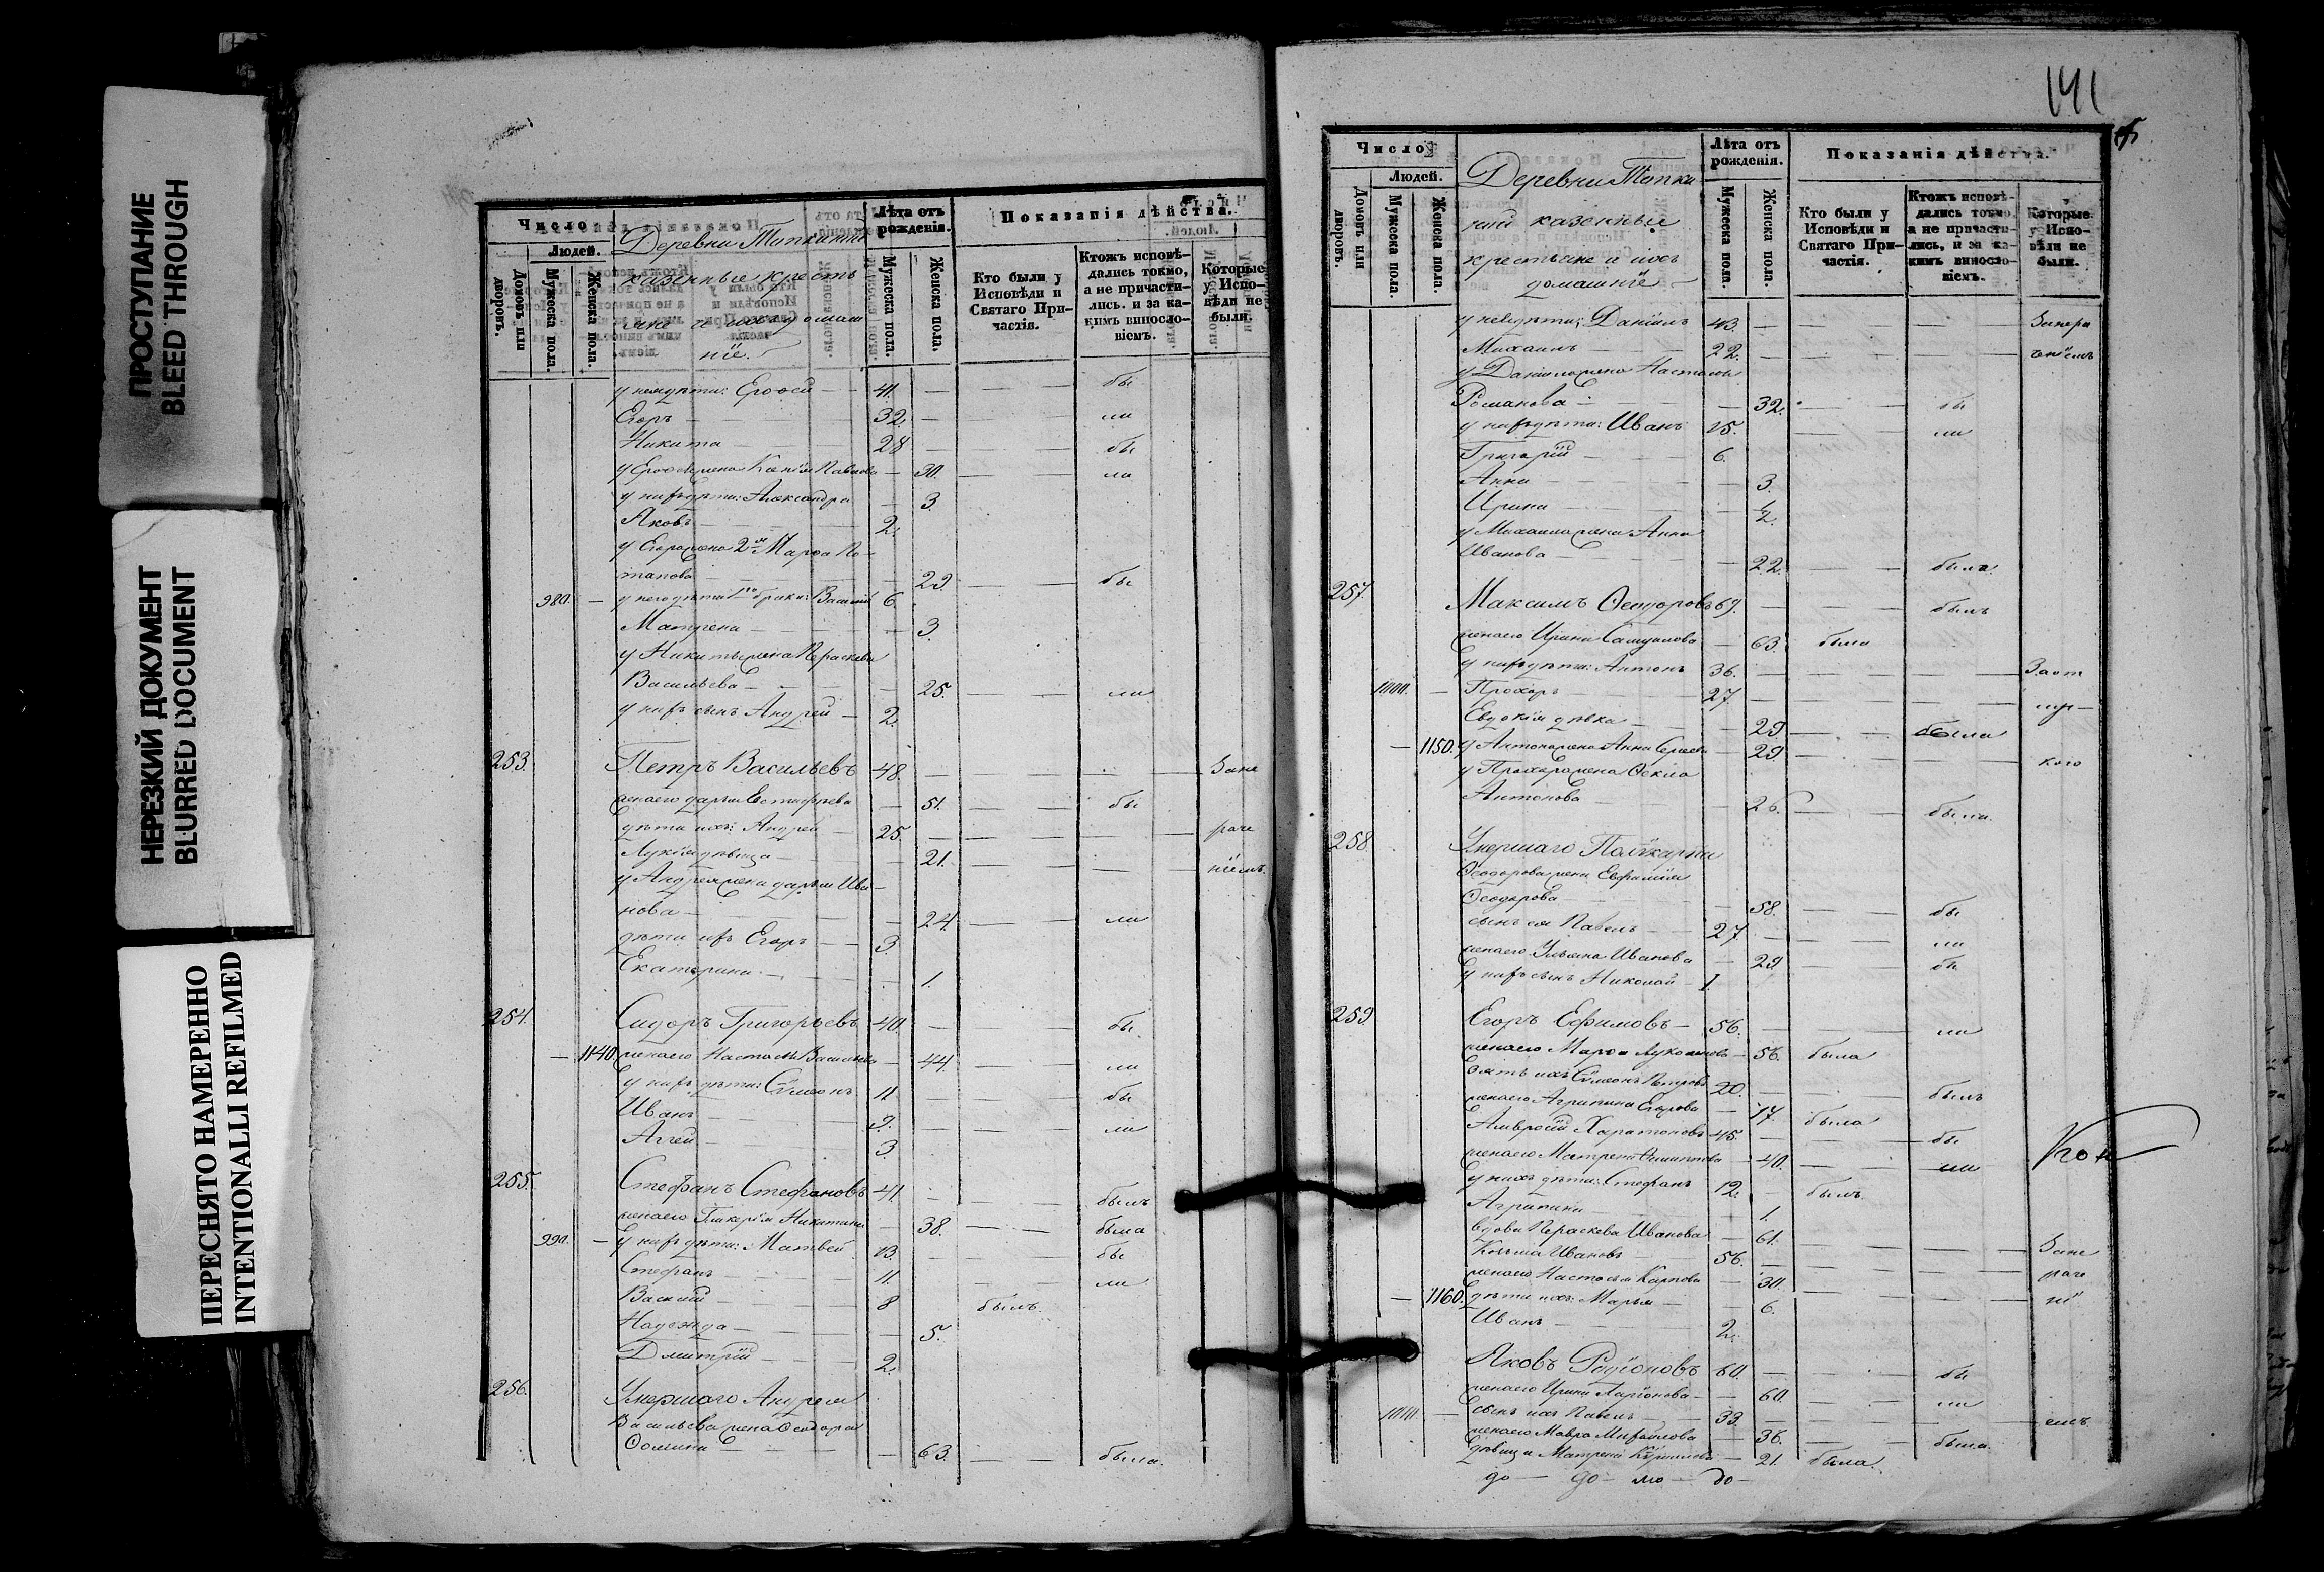 ПРОСТУПАНИЕ
BLEED THROUGH
НЕРЕЗКИЙ ДОКУМЕНТ
BLURRED DOCUMENT
ПЕРЕСНЯТО НАМЕРЕННО
INTENTIONALLI REFILMED
Число
Людей.
Домовъ или дворовъ.
Мужеска пола.
Женска пола.
Деревни Тапкиной
казенные кресть
яне и ихъ домаш
ніе.
Лѣта отъ рожденія.
Мужеска пола.
Женска пола.
Показанія дѣйства.
Кто были у Исповѣди и Святаго Причастія.
Ктожъ исповѣдались токмо, а не причастились. и за какимъ винословіемъ.
Которые у Исповѣди не были.
у нихъ дѣти: Ерофей 41. бы
Егоръ 32. ли
Никита 28 бы
у Ерофея жена Павлова 30. ла
у нихъ дѣти: Александра 3.
Яковъ 2.
у Егора жена 2я Марѳа По-
тапова 29 бы
980. у него дѣти 1го брака: Василій 6.
Матрена 3.
у Никиты жена Параскева
Васильева 25. ли
у нихъ сынъ Андрей 2.
253. Петръ Васильевъ 48. Зане
жена его Дарья 51. бы
дѣти ихъ: Андрей 25. раче
Лукія дѣвица 21. ніемъ.
у Андрея жена Дарья Ива-
нова 24. ли
дѣти ихъ Егоръ 3.
Екатерина 1.
254. Сидоръ Григорьевъ 40. бы
1140. жена его Настасья Васильева 44. ли
у нихъ дѣти: Сѵмеонъ 11. бы
Иванъ 9. ли
Аггей 3.
255. Стефанъ Стефановъ 41. былъ
жена его Гликерія Никитина 38. была
990. у нихъ дѣти: Матвей 13. бы
Стефанъ 11. ли
Василій 8 былъ.
Надежда 5.
Дмитрій 2.
256. Умершаго Андрея
Васильева жена Ѳеодора
Фомина 63. была.
141
Число
Людей.
Домовъ или дворовъ.
Мужеска пола.
Женска пола.
Деревни Тапки
ной казенные
крестьяне и ихъ
домашніе
Лѣта отъ рожденія.
Мужеска пола.
Женска пола.
Показанія дѣйства.
Кто были у Исповѣди и Святаго Причастія.
Ктожъ исповѣдались токмо, а не причастились, и за какимъ винословіемъ.
Которые у Исповѣди не были.
у нея дѣти: Даніилъ 43.
Михаилъ 22.
у Даніила жена Настасья
Романова 32. бы
у нихъ дѣти: Иванъ 15. ли
Григорій 6.
Анна 3.
Ирина
у Михаила жена Анна
Иванова 22. была.
257. Максимъ Ѳеодоровъ 69. былъ
жена его Ирина Самуилова 63. была
у нихъ дѣти: Антонъ 36. Заот
1000. Прохоръ 27. луч
Евдокія дѣвка 29 была
1150. у Антона жена Анна 29. кою
у Прохора жена Ѳекла
Антонова 26. была.
258. Умершаго Поликарпа
Ѳеодорова жена Евфимія
Ѳеодорова 58. бы
сынъ ея Павелъ 27. ли
жена его Ульяна Иванова 29 бы
у нихъ сынъ Николай 1.
259. Егоръ Ефимовъ 56. ли
жена его Марѳа 56. была
зять ихъ Сѵмеонъ Петровъ 20. былъ
жена его Агрипина Егорова 17. была
Амвросій Харитоновъ 45. бы
жена его Матрена Филиппова 40. ли
у нихъ дѣти: Стефанъ 12. былъ.
Агрипина 1.
вдова Параскева Иванова 61. Зане
Козьма Ивановъ 56. раче
жена его Настасья Карпова 30. ні
1160. дѣти ихъ: Марья 6.
Иванъ 2.
Яковъ Родіоновъ 60. бы
жена его Ирина Ларіонова 60. ли
1010. сынъ ихъ Павелъ 33. емъ.
жена его Мавра Михайлова 36. была.
дѣвица Матрена 21. была.